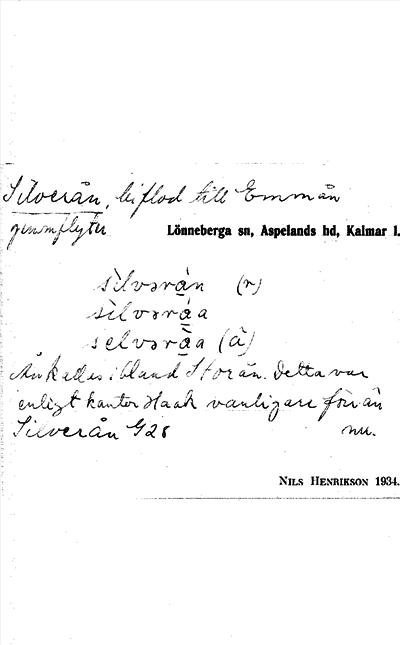 Silverån, biflod till Emmån
genomflyter Lönneberga sn, Aspelands hd, Kalmar l.
silvərån (r)
silvəråa
selvəråa (å)
Ån kallas ibland Storån. Detta var
enligt kantor Haak vanligare förr än
Silverån G28 nu.
NILS HENRIKSON 1934.